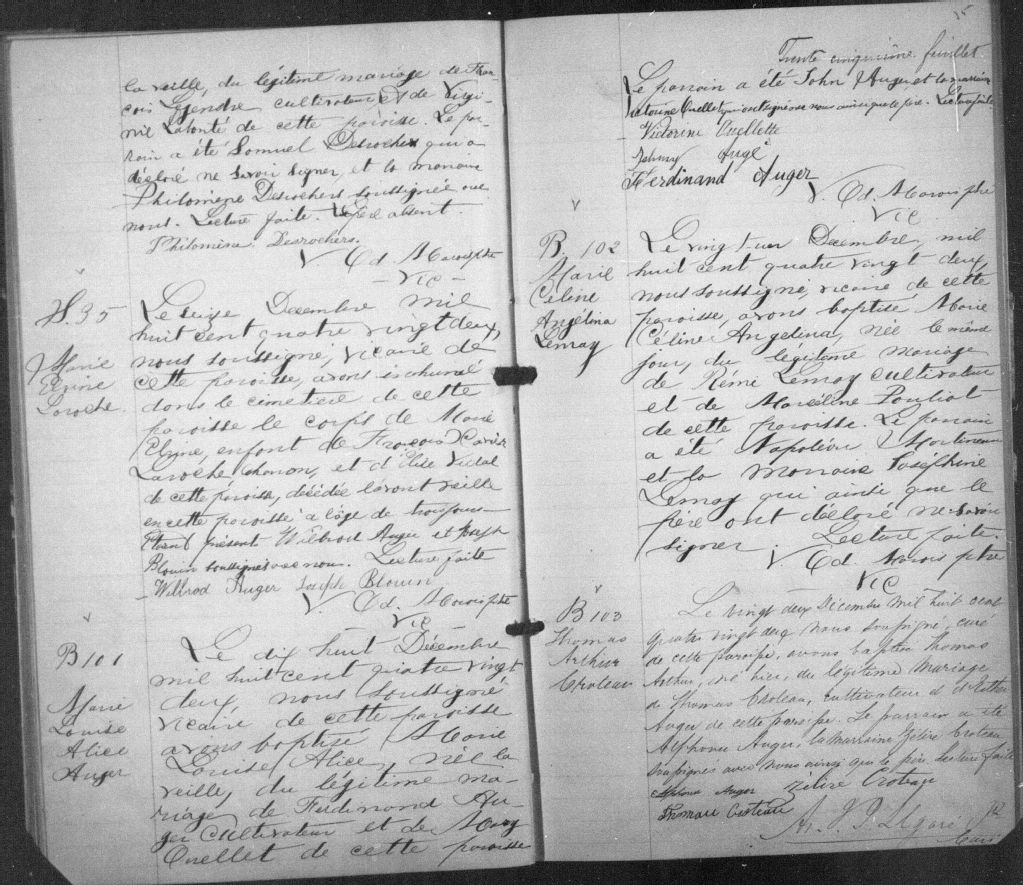 la veille, du légitime mariage de Fran-
çois Gendre cultivateur et de Virgi-
nie Latonté de cette paroisse. Le par-
rain a été Samuel Desrochers qui a
déclaré ne savoir signer, et la marraine
Philomène Desrochers soussignée avec
nous. Lecture faite. Le père absent.
Philomène Desrochers.
V. Ed. Marois ptre
- Vic -
S. 35
Marie
Laroche.
Le seize Décembre mil
huit cent quatre vingt deux,
nous soussigné, vicaire de
cette paroisse, avons inhumé
dans le cimetière de cette
paroisse le corps de Marie
enfant de François Xavier
Laroche, et d'Elise Vidal
de cette paroisse, décédée l'avant veille
en cette paroisse a l'âge de
Etant présent Wilbrod Auger et Joseph
Blouin soussignés avec nous. Lecture faite
Wilbrod Auger Joseph Blouin
V. Ed. Marois ptre
Vic
B 101
Marie
Louise
Alice
Auger
Le dix huit Décembre
mil huit cent quatre vingt
deux, nous soussigné
vicaire de cette paroisse
avons baptisé Marie
Louise Alice, née la
veille, du légitime ma-
riage de Ferdinand Au-
ger cultivateur et de Mary
Ouellet de cette paroisse
35
Trente cinquième feuillet
Le parrain a été John Auger et la marraine
Victorine Ouellet qui ont signé avec nous ainsi que le père. Lecture faite
Victorine Ouellette
Johnny Augé
Ferdinand Auger
V. Ed. Marois ptre
Vic
B. 102
Marie
Céline
Angélina
Lemay
Le vingt-un Décembre, mil
huit cent quatre vingt deux,
nous soussigné, vicaire de cette
paroisse, avons baptisé Marie
Céline Angelina, née le même
jour, du légitime mariage
de Rémi Lemay cultivateur
et de Marceline Pouliot
de cette paroisse. Le parrain
a été Napoléon Martineau
et la marraine Joséphine
Lemay qui ainsi que le
père ont déclaré ne savoir
signer. Lecture faite.
V. Ed. Marois ptre
Vic
B 103
Thomas
Arthur
Croteau
Le vingt deux Décembre mil huit cent
quatre vingt deux nous soussigné, curé
de cette paroisse, avons baptisé Thomas
Arthur, né hier, du légitime mariage
de Thomas Croteau, cultivateur et d'Esther
Auger de cette paroisse. Le parrain a été
Alphonse Auger, la marraine Zélire Croteau
soussignés avec nous ainsi que le père. Lecture faite
Alphonse Auger Zélire Croteau
Thomas Croteau
Curé